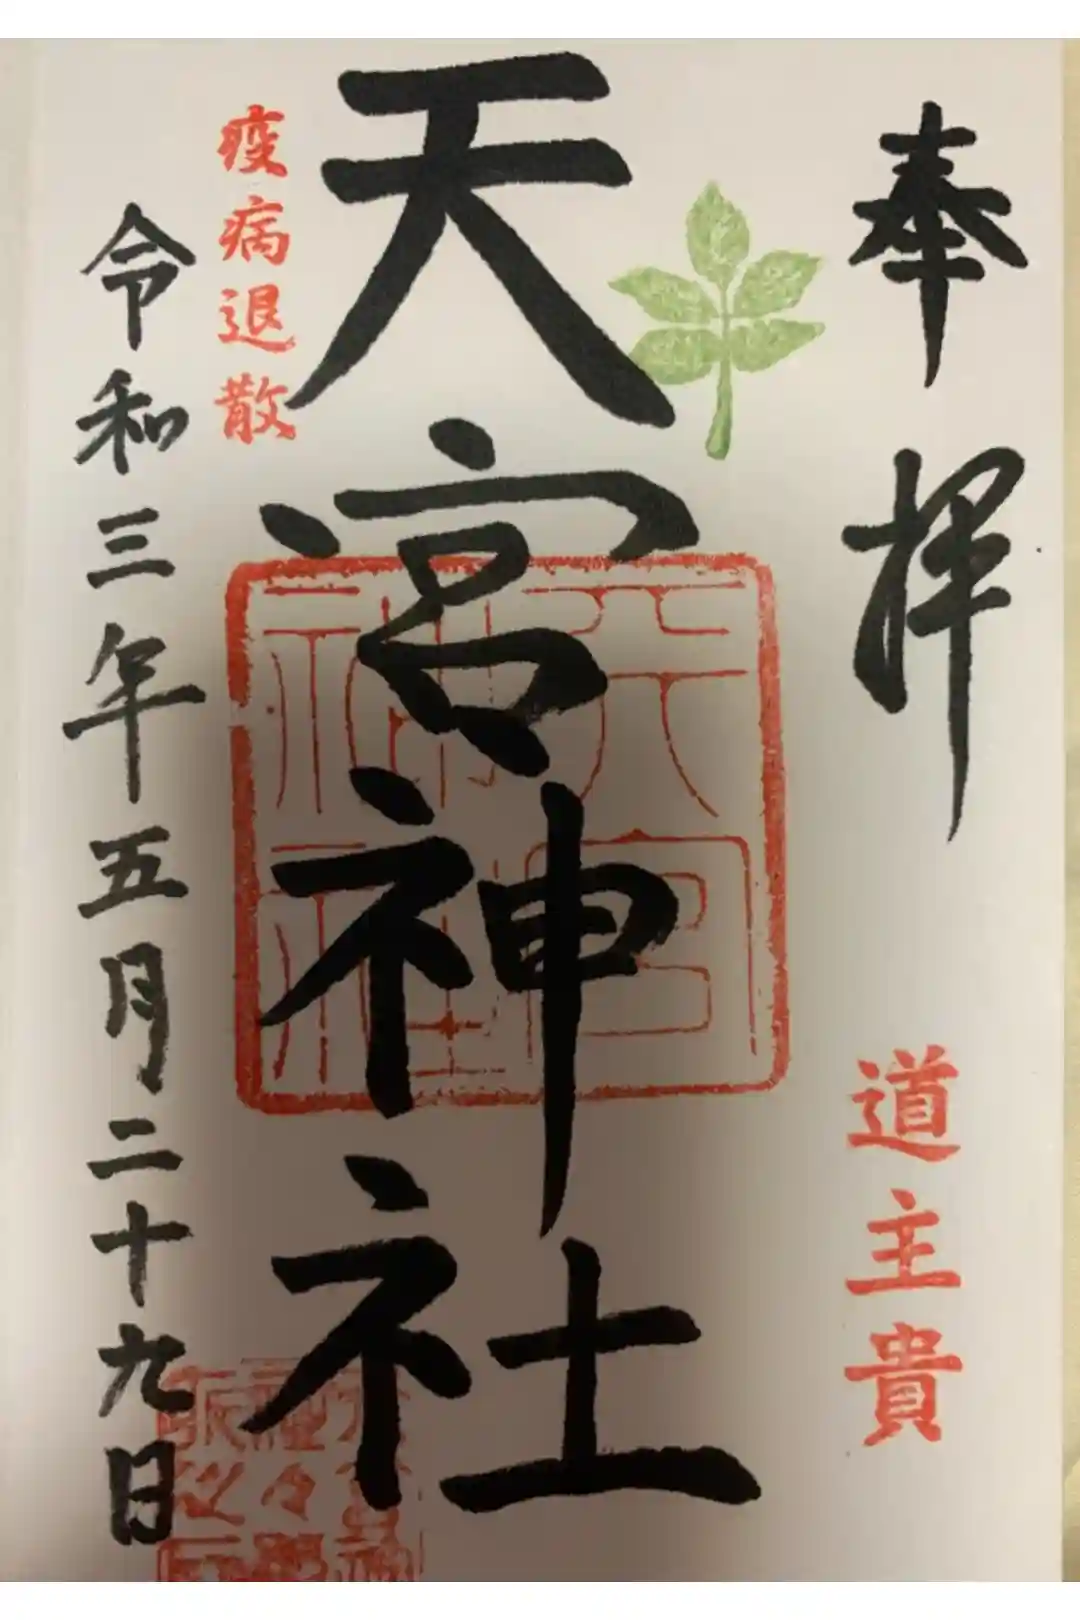 奉拝
道主貴
天宮神社
天宮
神社
疫病退散
令和三年五月二十九日